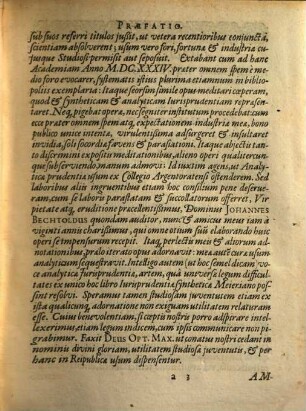 PRÆFATIO.
sub suos referri titulos jussit, ut vetera recentioribus conjuncta,
scientiam absolverent; usum vero fors, fortuna & industria cu-
jusque Studiosi permisit aut seposuit. Extabant cum ad hanc
Academiam Anno M. DC. XXXIV. prater omnem spem è me-
dio foro evocarer, systematis ejus plurima etiamnum in biblio-
polis exemplaria: Itaque seorsim simile opus meditari ceperam,
quod & syntheticam & analyticam Iurisprudentiam reprasen-
taret. Neq, pigebat opera, nec segniter institutum procedebat: cum
ecce prater omnem spematq, expectationem industria mea, bono
publico unice intenta, virulentissima adsurgeret & insultaret
invidia, solis socordia favens & parasitationi. Itaque abjectu tan-
to discrimini expositis meditationibus, alieno operi qualitercun-
que subservituendo manum admovi: Idiustim agens, ut Analyti-
ca prudentia usum ex Collegio Argentoratensi ostenderem. Sed
laboribus aliis ingruentibus etiam hoc consilium pene deserue-
ram, cum se laboris parastatam & succollatorum offerret, Vir
pietate atq, eruditione præcellentissimus, Dominus JOHANNES
BECHTOLDUS quondam auditor, nunc & amicus meus iam à
viginti annis charissimus, qui omne otium suũ elaborando huic
operi se tempensurum recepit. Itaq, perlectis meis & aliorum ad-
notationibus, præla iterato opus adoravit: mea autē cura usum
analyticum subgestitavit. Intellige illum, ut hoc semel dicam vo-
ce analytica Jurisprudentia, artem, quâ universa legum difficul-
tates ex unico hoc libro Iurisprudentia Synthetica Meieriano pos-
sint resolvi. Speramus tamen studiosam juventutem etiam ex
ista qualicunq, adornatione non exiguam utilitatem relaturam
esse. Cuius benevolentiam, si cœptis nostris porro adspirare intel-
lexerimus, etiam legum indicem, cum ipsis communicare non pi-
grabimur. FAXIT DEUS OPT. MAX. ut conatus nostri cedant in
nominis divini gloriam, utilitatem studiosa juventutis, & per
hanc in Reipublica usum dispensentur.
a 3 AM-